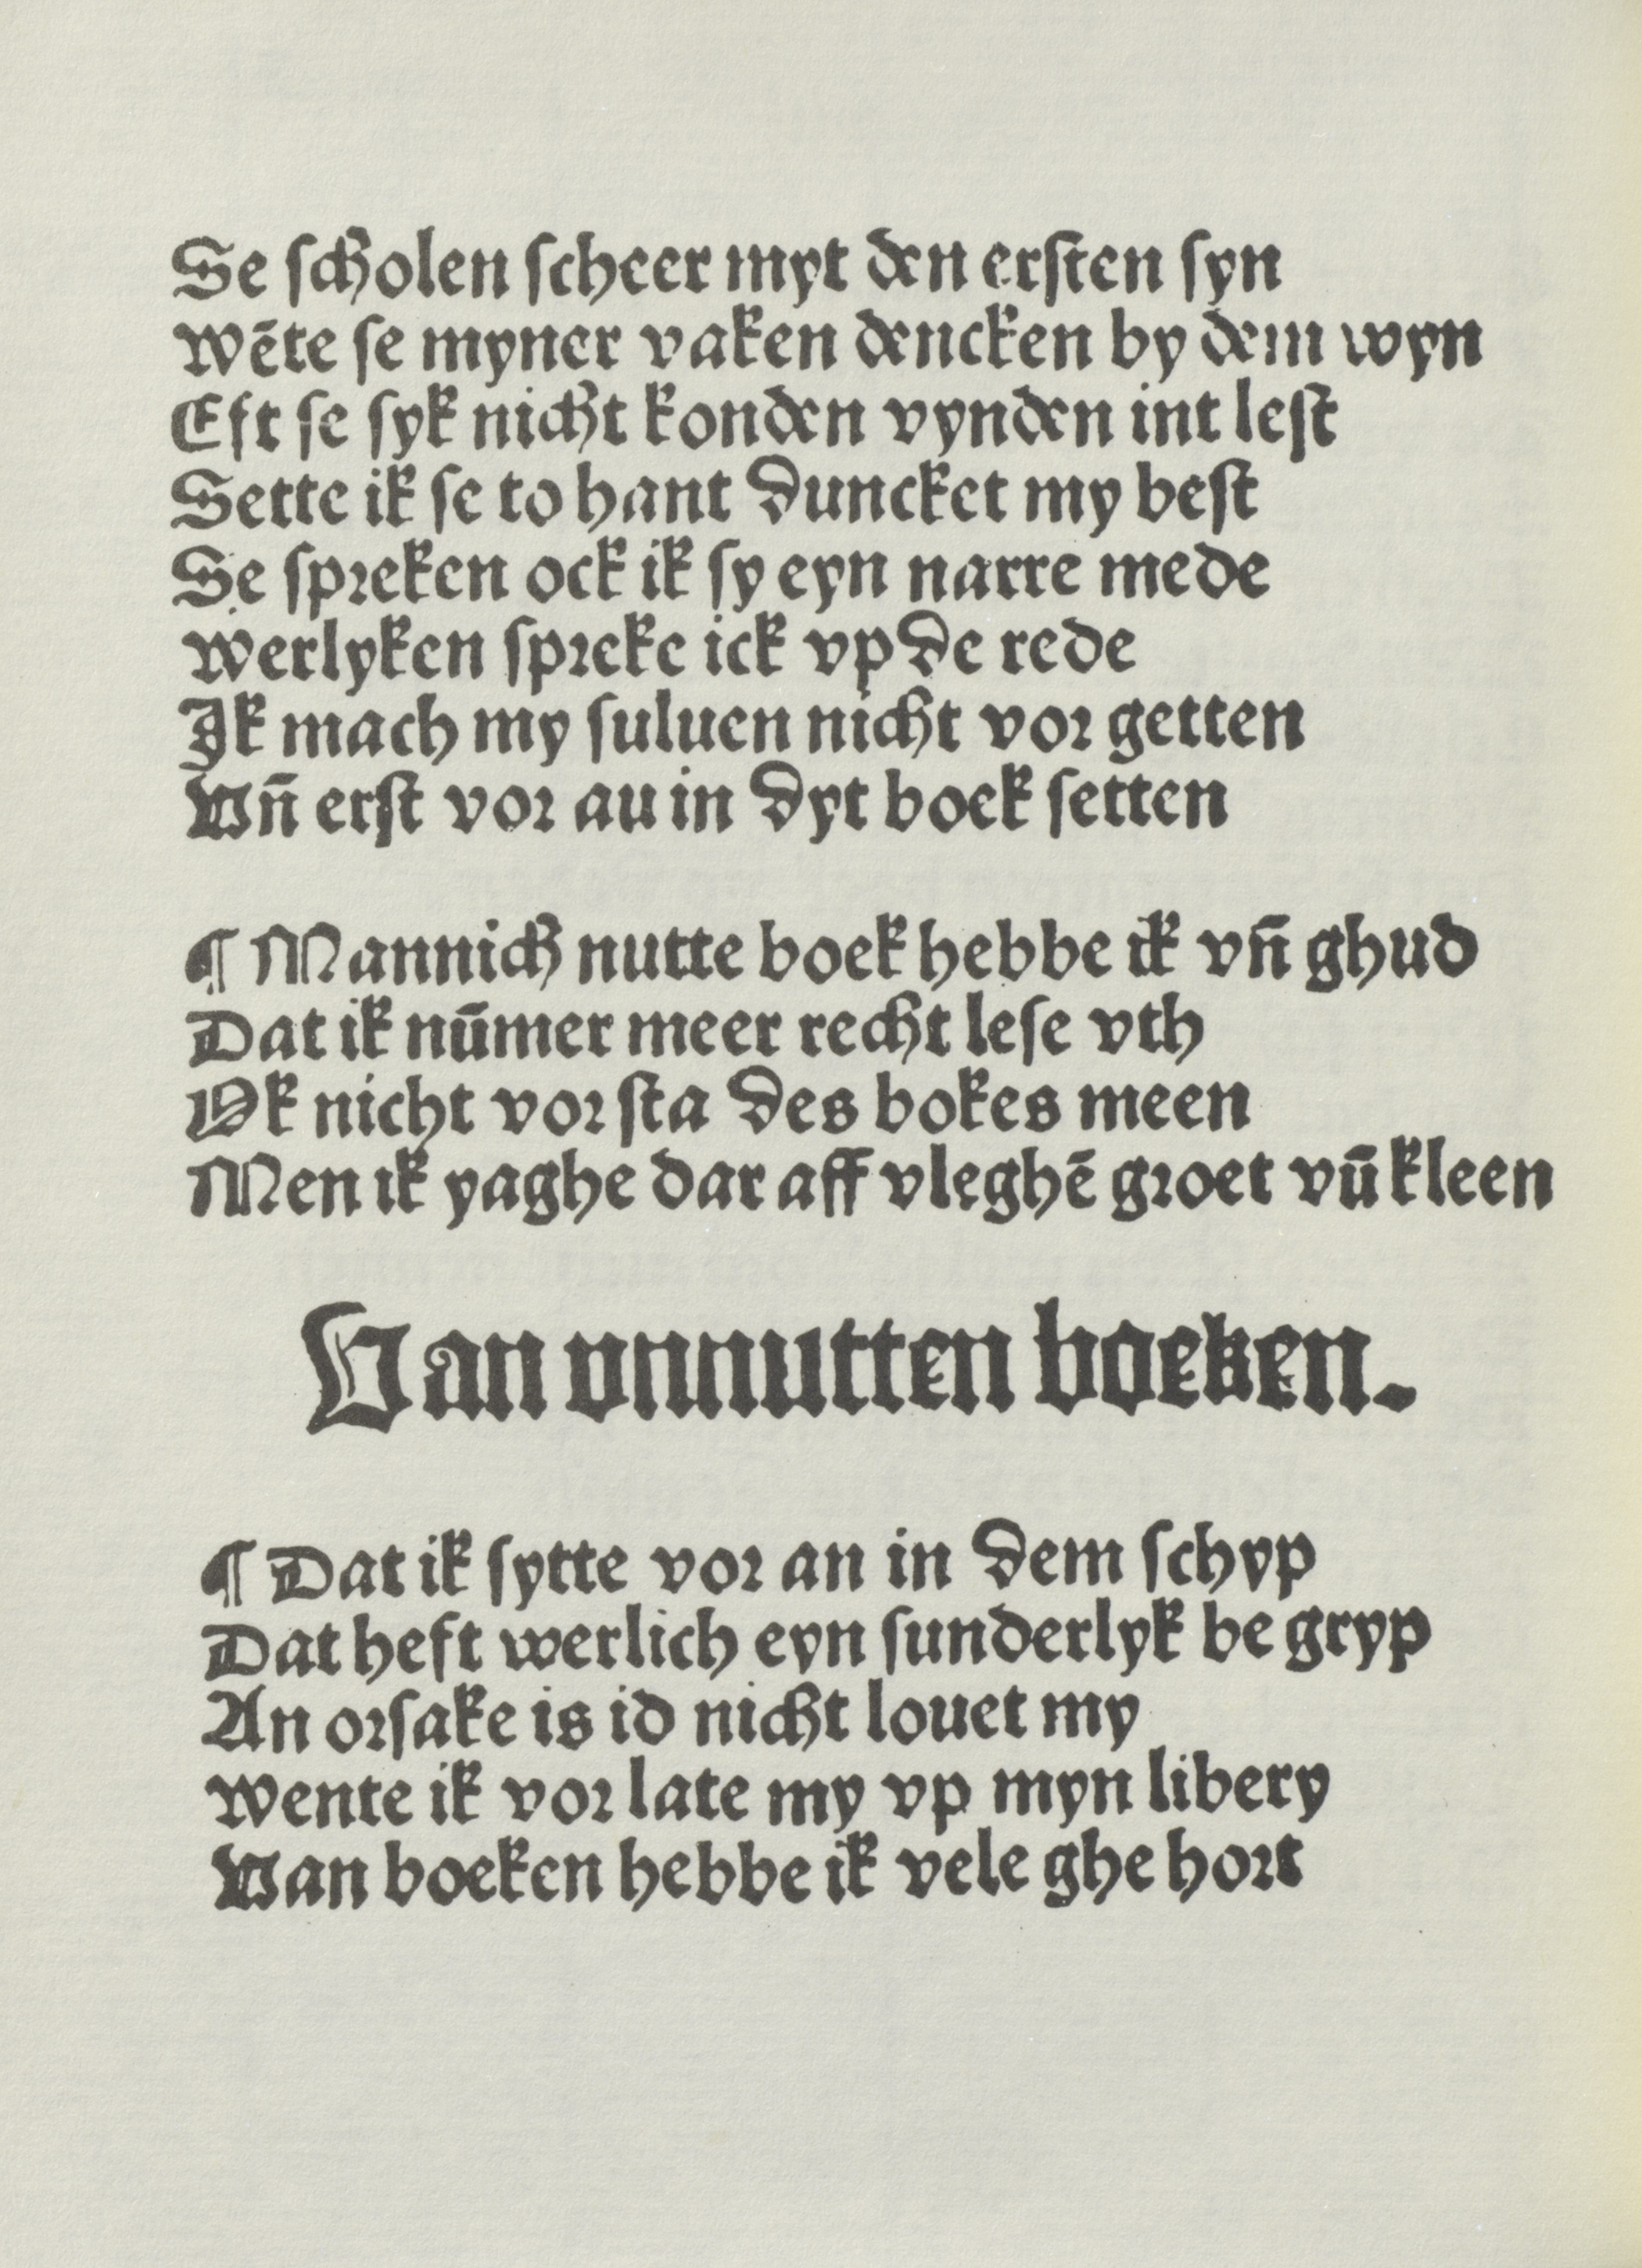 Se scholen scheer myt den ersten syn
wēte se myner vaken dencken by dem wyn
Eft se syk nicht konden vynden int lest
Sette ik se to hant duncket my best
Se spreken ock ik sy eyn narre mede
werlyken spreke ick vp de rede
Ik mach my suluen nicht vor getten
Vn̄ erst vor au in dyt boek setten
¶ Mannich nutte boek hebbe ik vn̄ ghud
Dat ik nūmer meer recht lese vth
Ok nicht vor sta des bokes meen
Men ik yaghe dar aff vleghē groet vū kleen
Van vnnutten boeken.
¶ Dat ik sytte vor an in dem schyp
Dat heft werlich eyn sunderlyk be gryp
An orsake is id nicht louet my
wente ik vor late my vp myn libery
Van boeken hebbe ik vele ghe hort